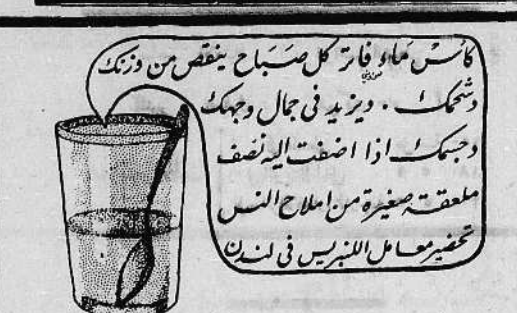 كأس ماء فاتر كل صباح ينقص من وزنك
وشحمك . ويزيد في جمال وجهك
وجسمك اذا اضفت اليه نصف
ملعقة صغيرة من املاح
تحضير معامل في لندن